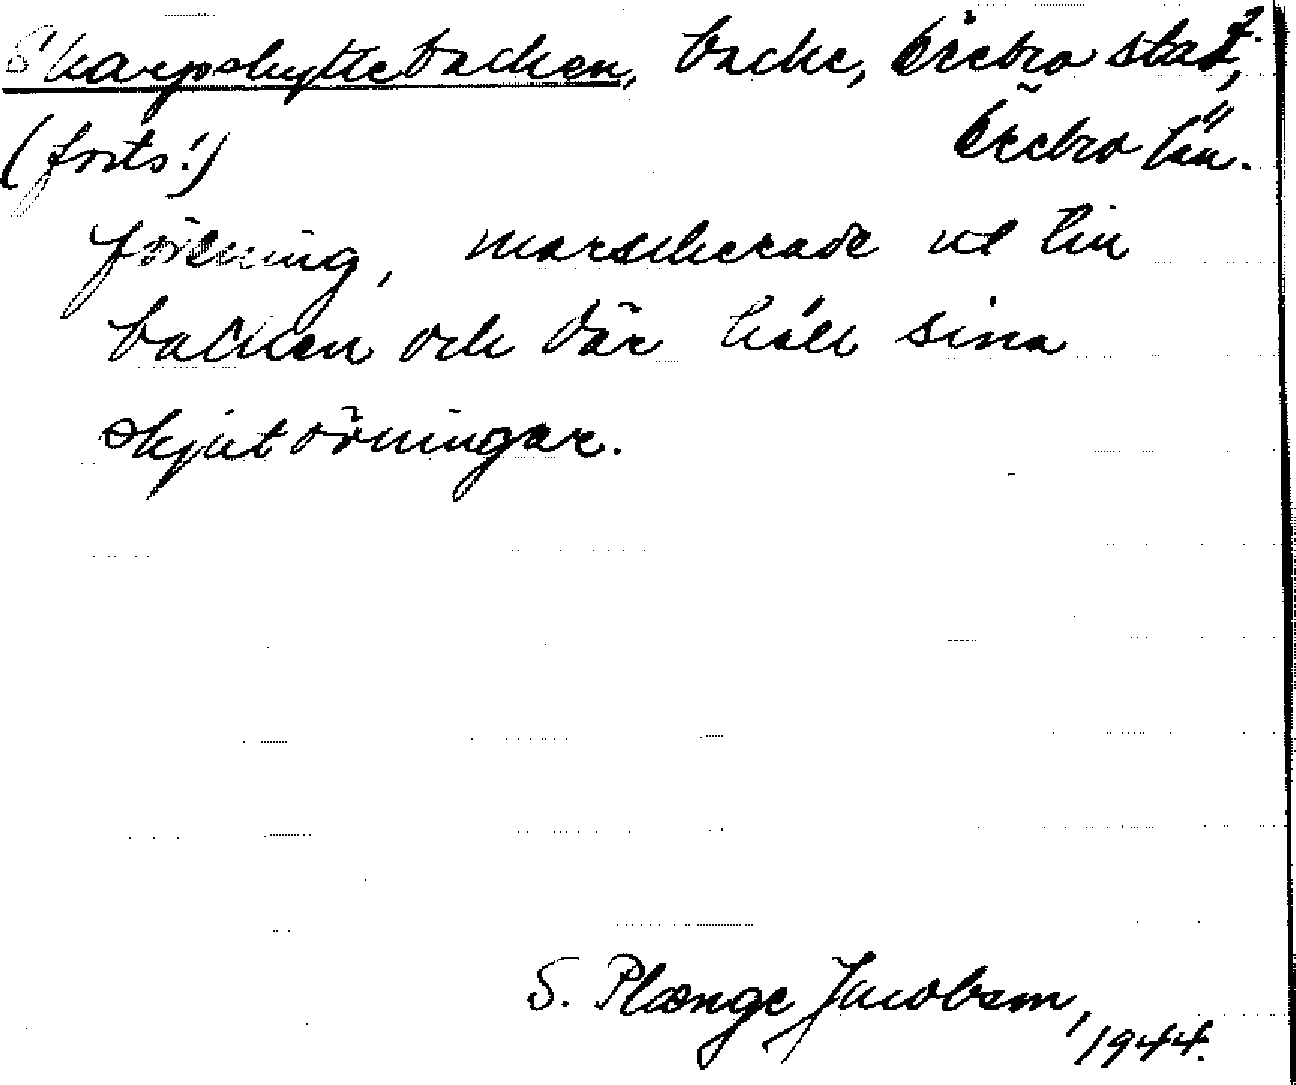 Skarpskyttebacken, backe, Örebro stad, 2.
(forts.!) Örebro län.
förening, marscherade ut till
backen och där höll sina
skjutövningar.
S. Plænge Jacobson,
1944.